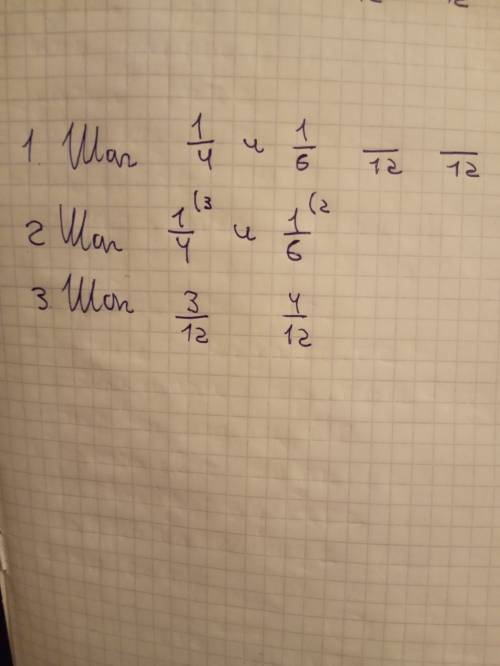 1. Шаг 1/4 и 1/6 _/12 _/12
2 Шаг 1/4 (3 и 1/6 (2
3. Шаг 3/12 4/12